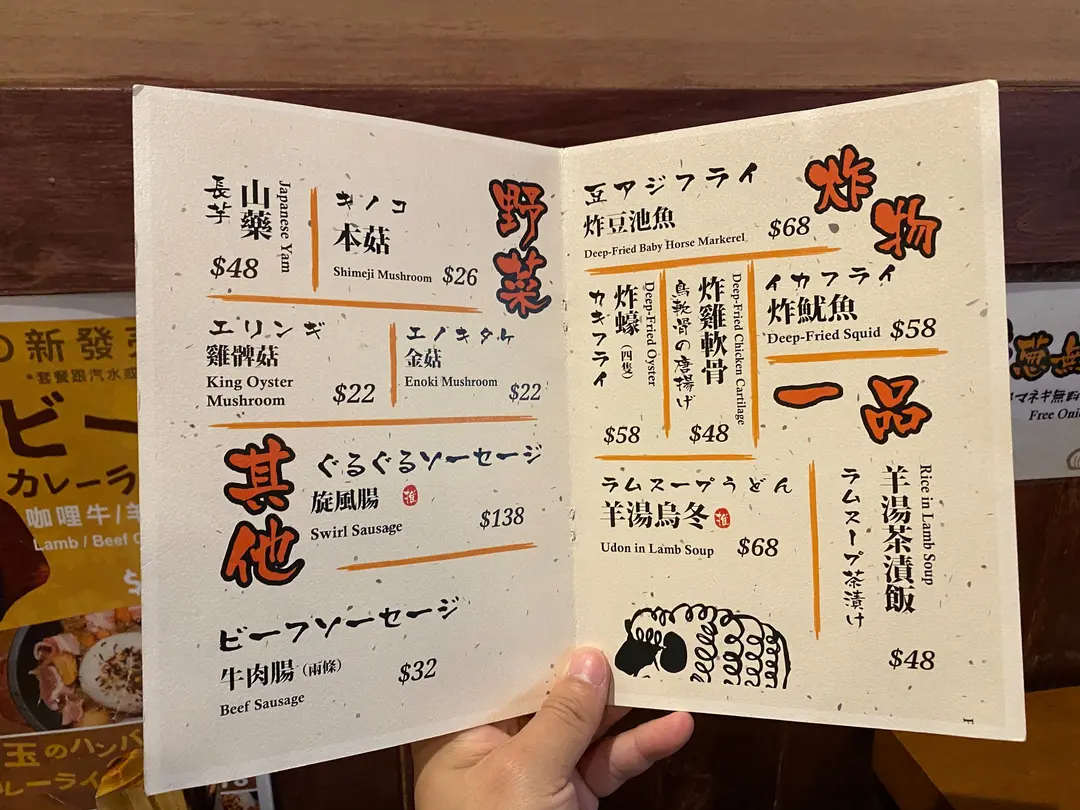 野菜
長芋
山藥
Japanese Yam
$48
キノコ
本菇
Shimeji Mushroom $26
エリンギ
雞髀菇
King Oyster
Mushroom $22
エノキタケ
金菇
Enoki Mushroom
$22
其他
ぐるぐるソーセージ
旋風腸 推
Swirl Sausage
$138
ビーフソーセージ
牛肉腸(兩條)
Beef Sausage
$32
炸物
豆アジフライ
炸豆池魚
Deep-Fried Baby Horse Markerel
$68
カキフライ
炸蠔(四隻)
Deep-Fried Oyster
$58
鳥軟骨の唐揚げ
炸雞軟骨
Deep-Fried Chicken Cartilage
$48
イカフライ
炸魷魚
Deep-Fried Squid $58
一品
ラムスープうどん
羊湯烏冬 推
Udon in Lamb Soup $68
ラムスープ茶漬け
羊湯茶漬飯
Rice in Lamb Soup
$48
新發
*套餐跟汽水或
ビー
カレーラ
咖哩牛/羊
Lamb / Beef
玉のハンバ
レーライ
マネギ無料
Free Oni